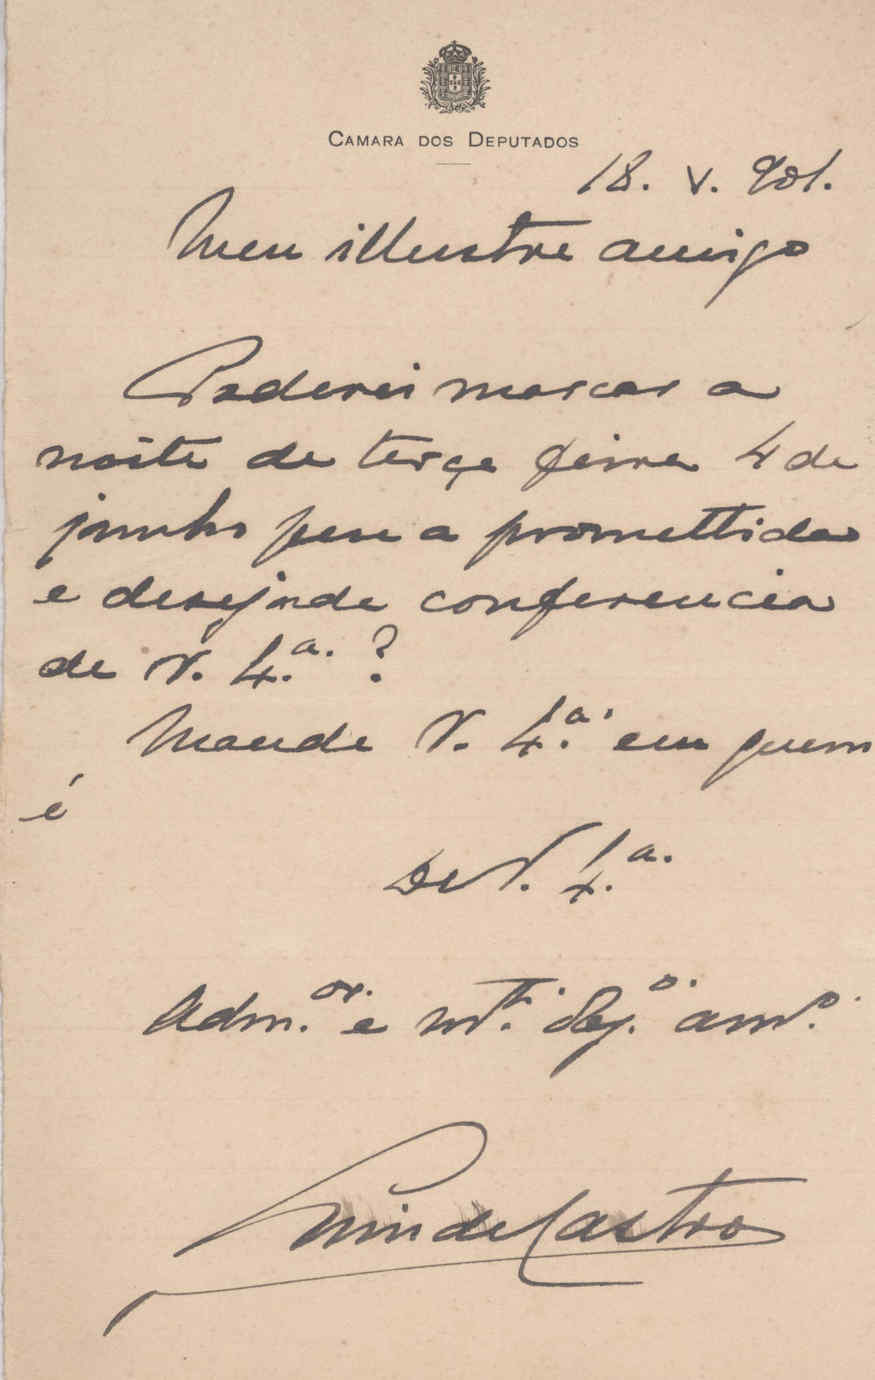 CAMARA DOS DEPUTADOS
18. V. 901.
Meu illustre amigo
Poderei marcar a
noite de terça feira 4 de
junho para a promettida
e desejada conferencia
de V. Ex.ª ?
Mande V. Ex.ª em quem
é
De V. Ex.ª
Adm.or e m.to am.o
de Castro